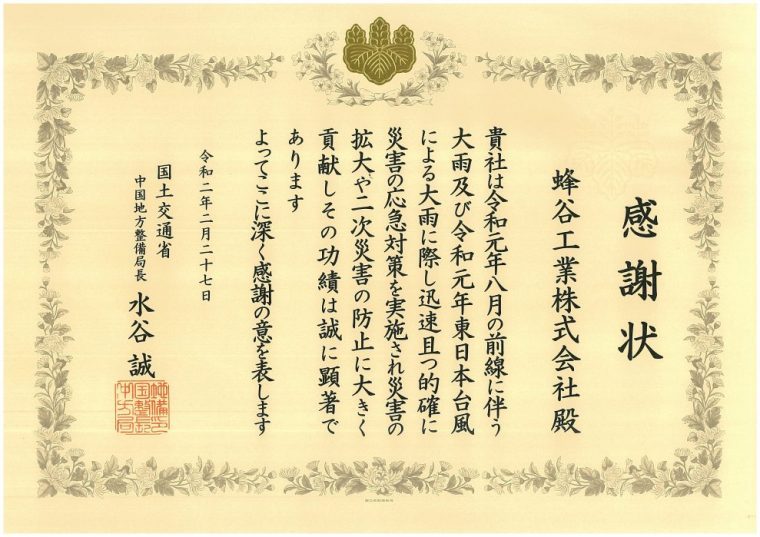 感謝状
蜂谷工業株式会社殿
貴社は令和元年八月の前線に伴う
大雨及び令和元年東日本台風
による大雨に際し迅速且つ的確に
災害の応急対策を実施され災害の
拡大や二次災害の防止に大きく
貢献しその功績は誠に顕著で
あります
よってここに深く感謝の意を表します
令和二年二月二十七日
国土交通省
中国地方整備局長
水谷誠